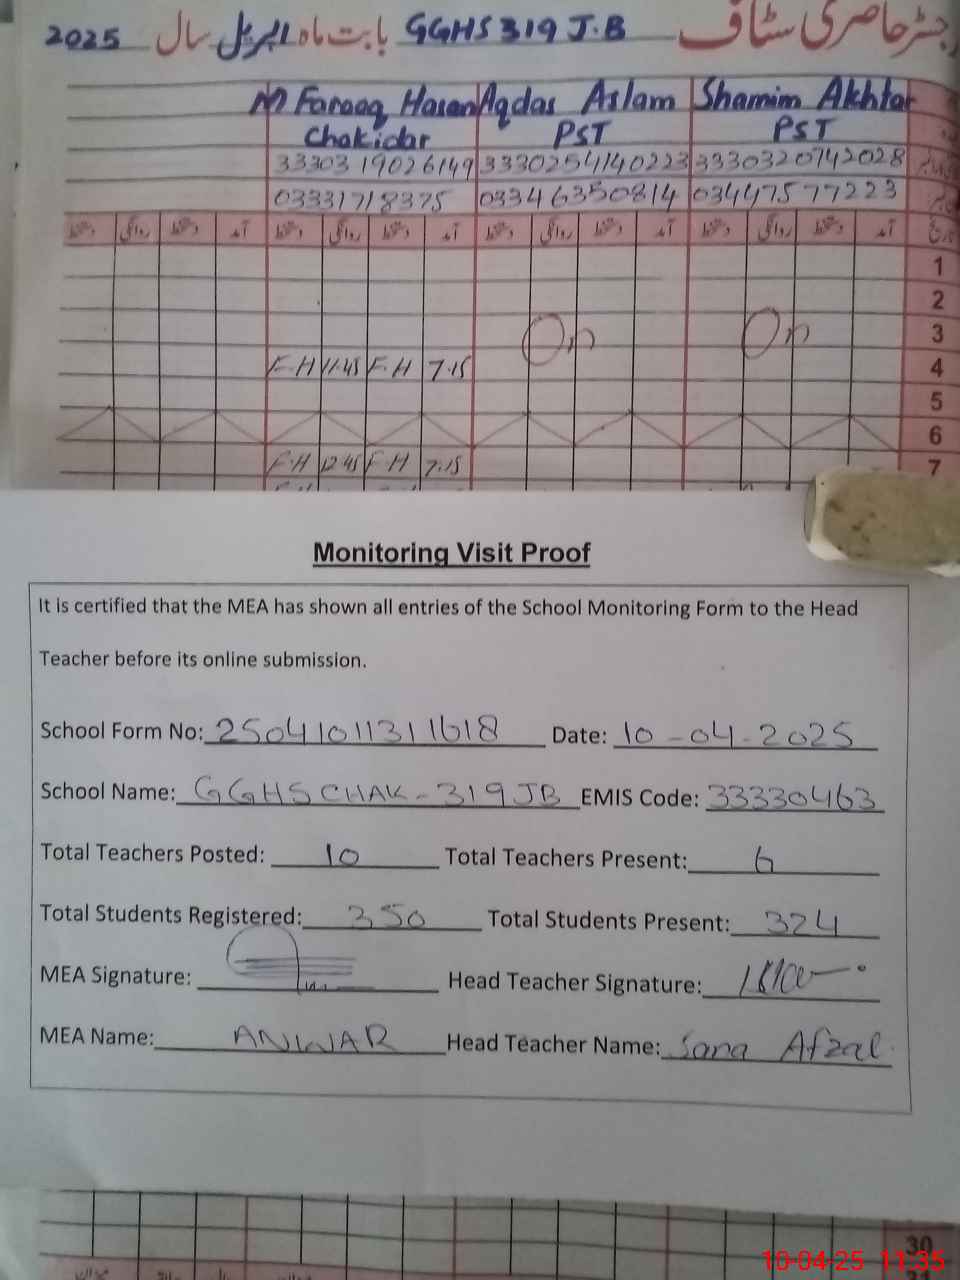 رجسٹر حاضری سٹاف GGHS 319 J.B بابت ماہ اپریل سال 2025
M Farooq Hasan Aqdas Aslam Shamim Akhtar
Chokidar PST PST
33303 19026149 3330254140223 3330320742028
03331718375 03346350814 03447577223
آمد دستخط روانگی دستخط آمد دستخط روانگی دستخط آمد دستخط روانگی دستخط آمد دستخط روانگی دستخط
1
2
On On 3
F.H 11.45 F.H 7.15 4
5
6
F.H 12.45 F.H 7.15 7
Monitoring Visit Proof
It is certified that the MEA has shown all entries of the School Monitoring Form to the Head
Teacher before its online submission.
School Form No: 25041011311618 Date: 10-04-2025
School Name: GGHS CHAK-319JB EMIS Code: 33330463
Total Teachers Posted: 10 Total Teachers Present: 6
Total Students Registered: 350 Total Students Present: 324
MEA Signature: Head Teacher Signature:
MEA Name: ANWAR Head Teacher Name: Sana Afzal
30
10-04-25 11:35